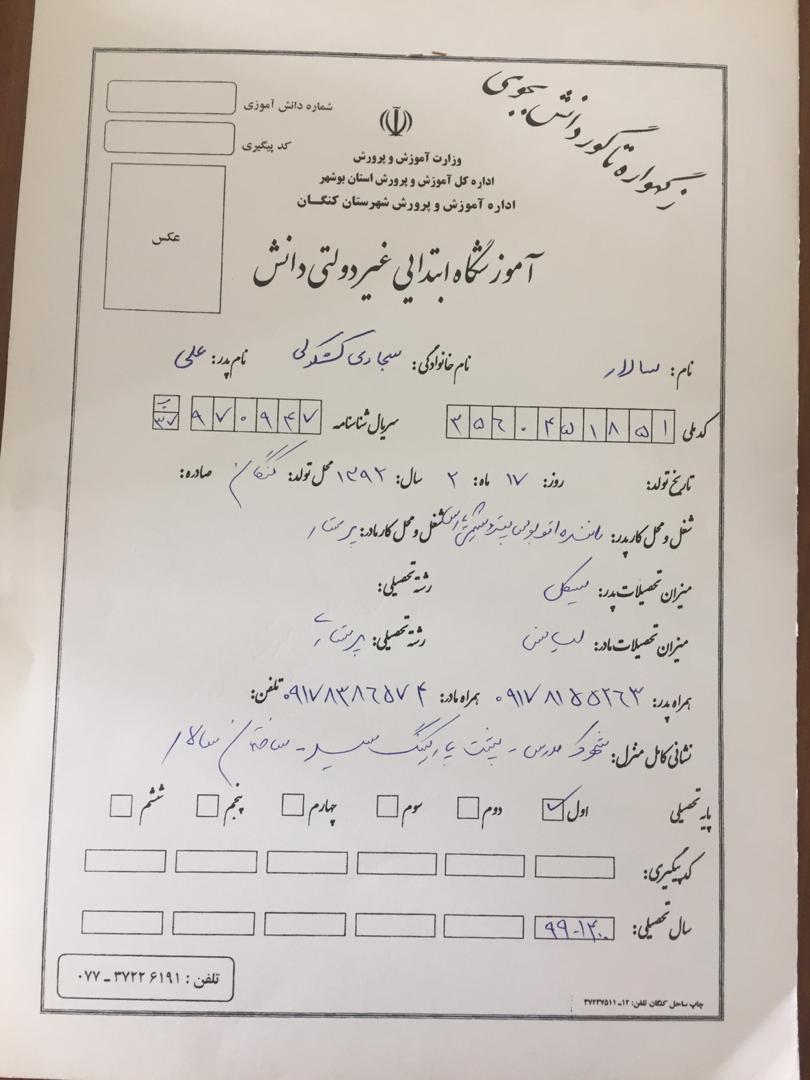 ز گهواره تا گور دانش بجوی
شماره دانش آموزی
کد پیگیری
عکس
وزارت آموزش و پرورش
اداره کل آموزش و پرورش استان بوشهر
اداره آموزش و پرورش شهرستان کنگان
آموزشگاه ابتدایی غیردولتی دانش
نام: سالار نام خانوادگی: سجادی کشکولی نام پدر: علی
کد ملی ۳۵۶۰۴۵۱۸۵۱ سریال شناسنامه ۹۷۰۹۴۷ ب ۳۷
تاریخ تولد: روز: ۱۷ ماه: ۲ سال: ۱۳۹۲ محل تولد: کنگان صادره:
شغل و محل کار پدر: راننده اتوبوس پتروشیمی شغل و محل کار مادر: پرستار
میزان تحصیلات پدر: سیکل رشته تحصیلی:
میزان تحصیلات مادر: لیسانس رشته تحصیلی: پرستاری
همراه پدر: ۰۹۱۷۸۱۵۵۲۶۳ همراه مادر: ۰۹۱۷۸۳۸۶۵۷۴ تلفن:
نشانی کامل منزل: شهرک مدرس - پشت پارکینگ سپر - ساختمان سالار
پایه تحصیلی اول ✓ دوم سوم چهارم پنجم ششم
کد پیگیری:
سال تحصیلی: ۹۹-۱۴۰۰
تلفن : ۳۷۲۲۶۱۹۱ - ۰۷۷
چاپ ساحل کنگان تلفن: ۱۲-۳۷۲۳۷۵۱۱